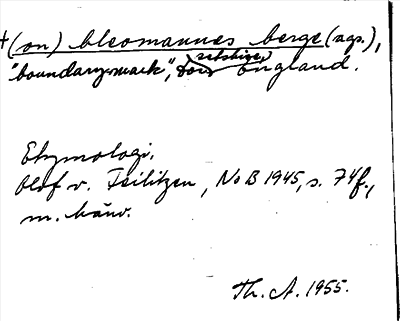 +(on) bleomannes berge (ags.),
"boundary-mark", England.
Etymologi.
Olof v. Feilitzen, NoB 1945, s. 74f.,
m. hänv.
Th. A. 1955.